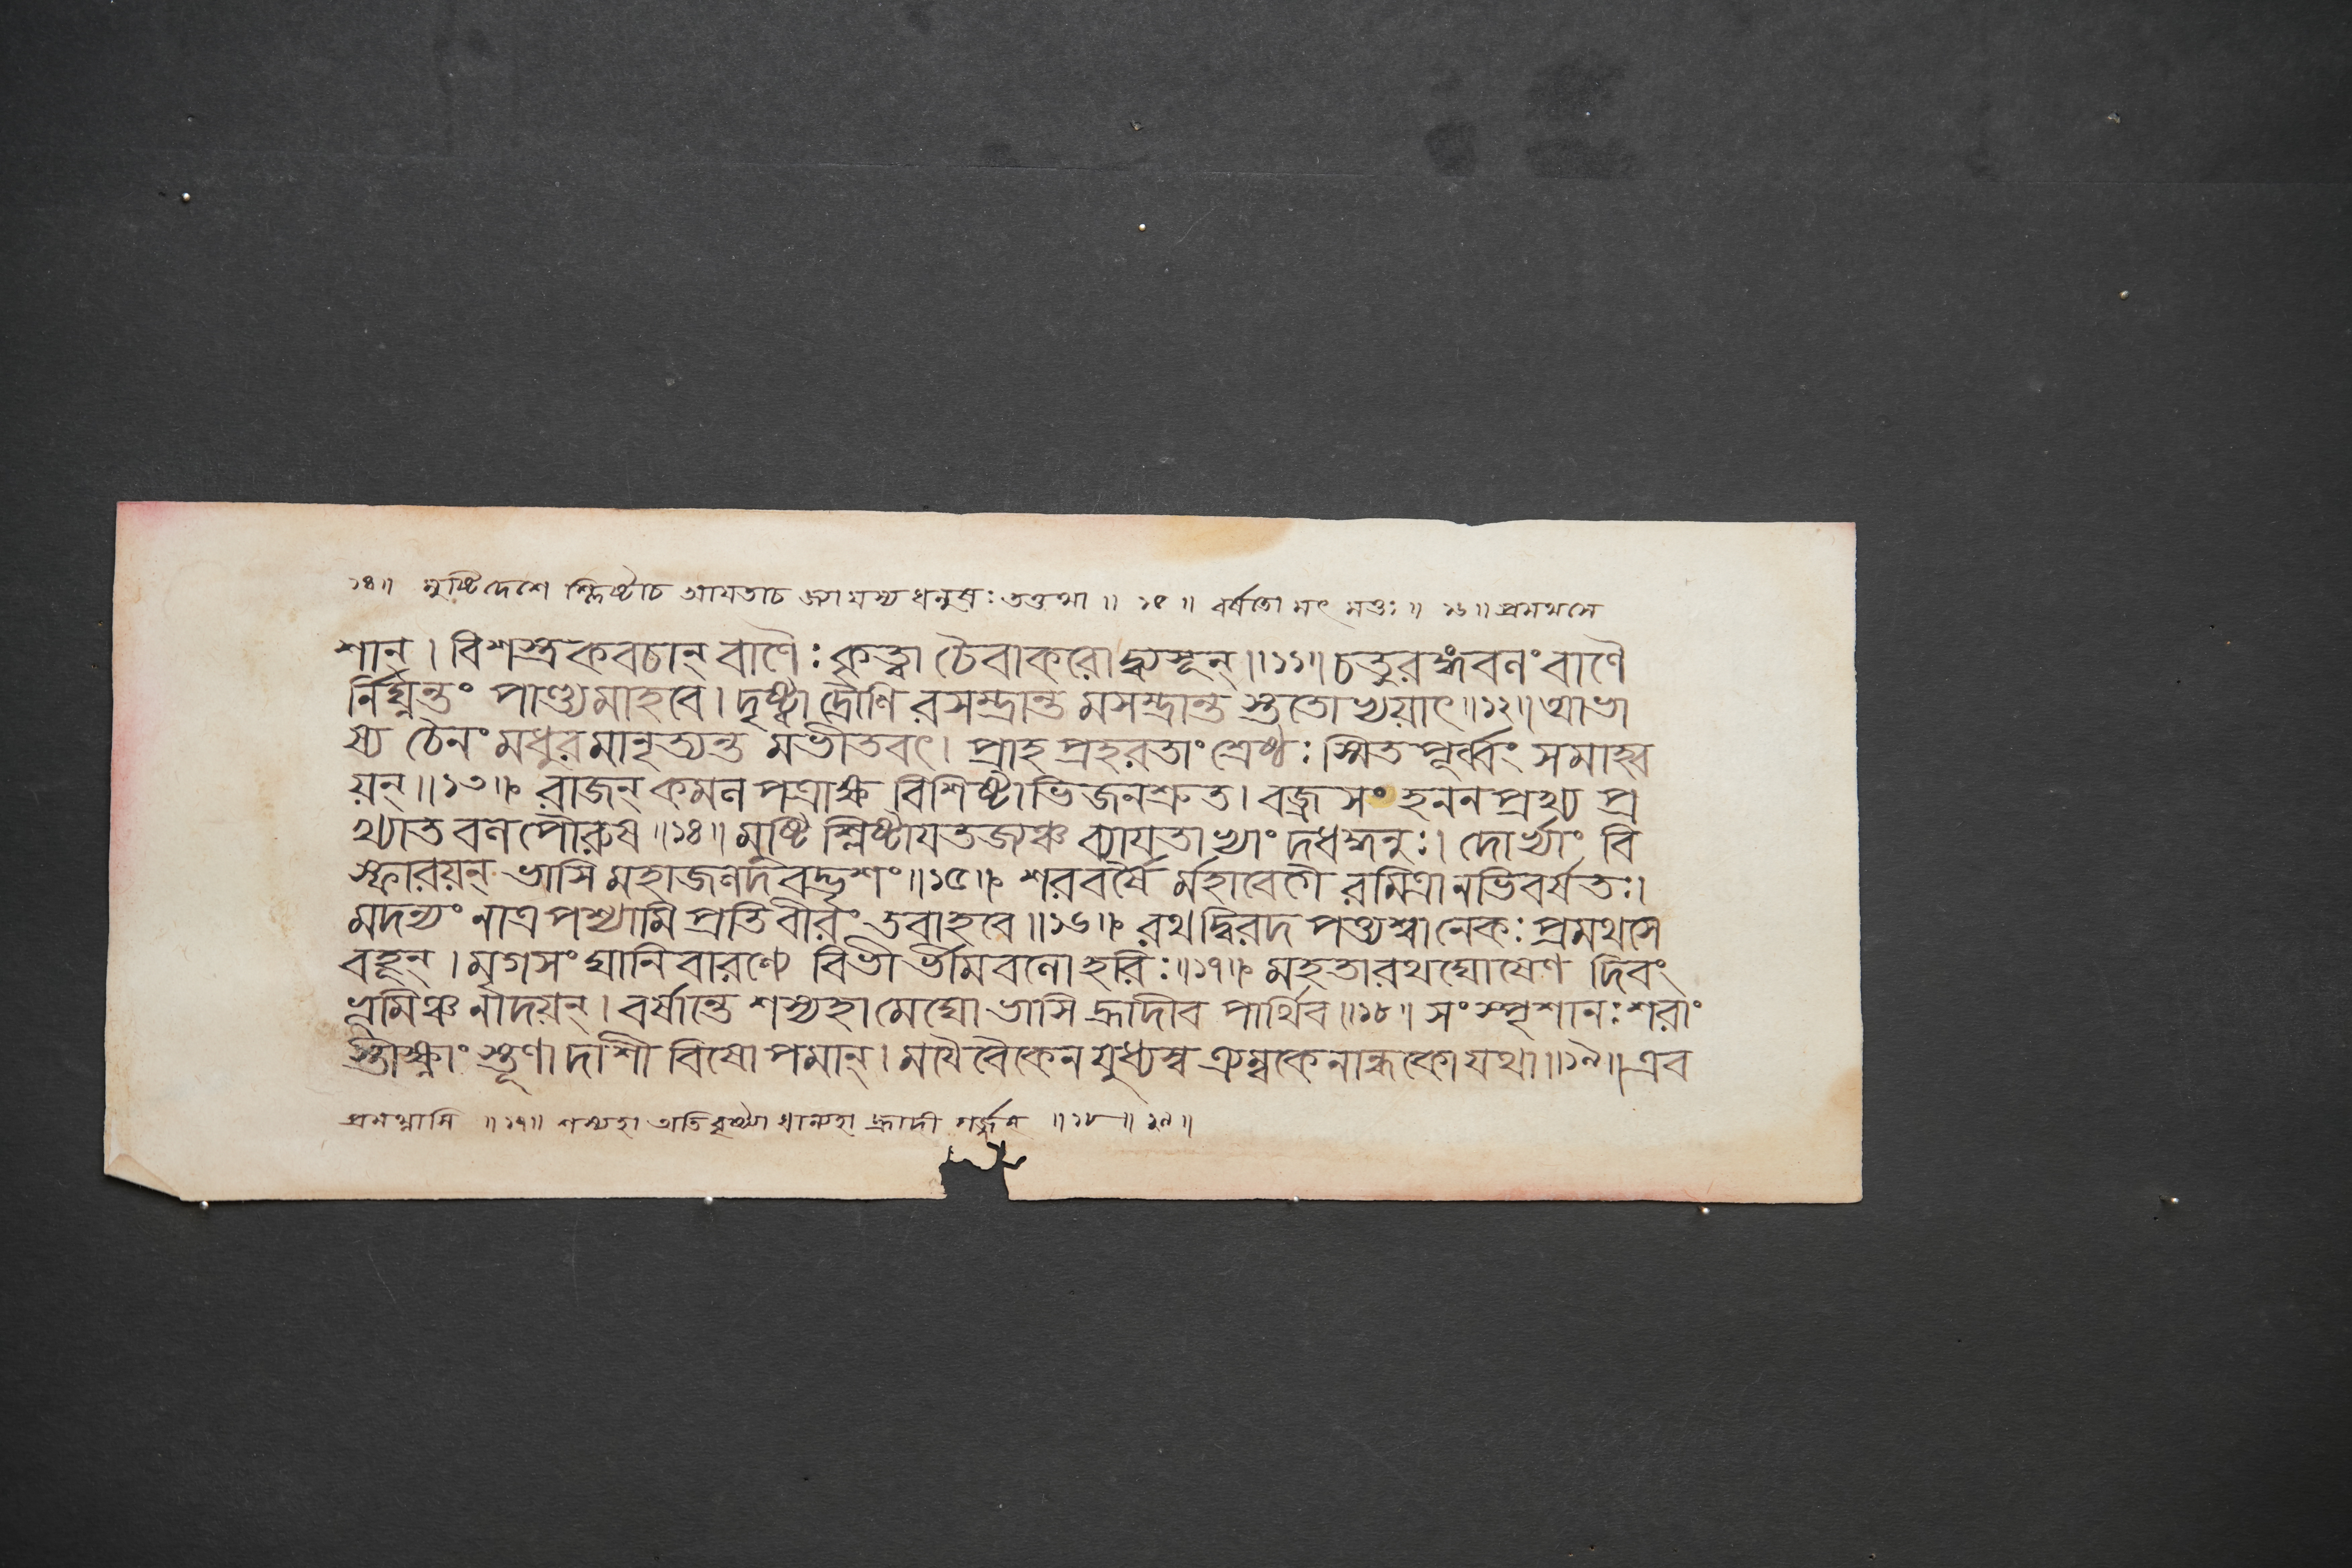 ১৪॥ মুষ্টিদেশে শ্লিষ্টাচ আয়তাচ জ্যা যস্য ধনুষঃ তত্তথা ॥ ১৫ ॥ বর্ষতো মৎ মত্তঃ ॥ ১৬ ॥ প্রমথসে
শান্ । বিশস্ত্রকবচান্ বাণৈঃ কৃত্বা চৈবাকরোদ্ব্যসূন্ ॥১১॥ চতুরঙ্গং বলং বাণৈ
র্নিঘ্নন্তং পাণ্ড্যমাহবে । দৃষ্ট্বা দ্রৌণি রসম্ভ্রান্ত মসম্ভ্রান্ত স্তুতোভ্যয়াৎ ॥১২॥ আভা
ষ্য চৈনং মধুরমানৃত্যন্ত মভীতবৎ । প্রাহ প্রহরতাং শ্রেষ্ঠঃ স্মিত পূর্ব্বং সমাহ্ব
য়ন্ ॥১৩॥ রাজন্ কমল পত্রাক্ষ বিশিষ্টাভিজনশ্রুত । বজ্র সং হনন প্রখ্য প্র
খ্যাত বল পৌরুষ ॥১৪॥ মুষ্টি শ্লিষ্টায়তজ্যঞ্চ ব্যায়তাভ্যাং দধদ্ধনুঃ । দোর্ভ্যাং বি
স্ফারয়ন্ ভাসি মহাজলদবদ্ভৃশং ॥১৫॥ শরবর্ষৈ র্মহাবেগৈ রমিত্রানভিবর্ষতঃ ।
মদন্যং নাত্র পশ্যামি প্রতিবীরং তবাহবে ॥১৬॥ রথদ্বিরদ পত্ত্যশ্বানেকঃ প্রমথসে
বহূন্ । মৃগসং ঘানিবারণ্যে বিভীর্ভীমবলো হরিঃ ॥১৭॥ মহতা রথঘোষেণ দিবং
ভূমিঞ্চ নাদয়ন্ । বর্ষান্তে শস্যহা মেঘো ভাসি হ্রাদীব পার্থিব ॥১৮॥ সং স্পৃশানঃ শরাং
স্তীক্ষ্ণাং স্তূণাদাশী বিষো পমান্ । ময়ৈবৈকেন যুধ্যস্ব ত্র্যম্বকেনান্ধকো যথা ॥১৯॥ এব
প্রমথ্নাসি ॥১৭॥ শস্যহা অতিবৃষ্ট্যা ধান্যহা হ্রাদী গর্জ্জন্ ॥১৮॥ ১৯॥